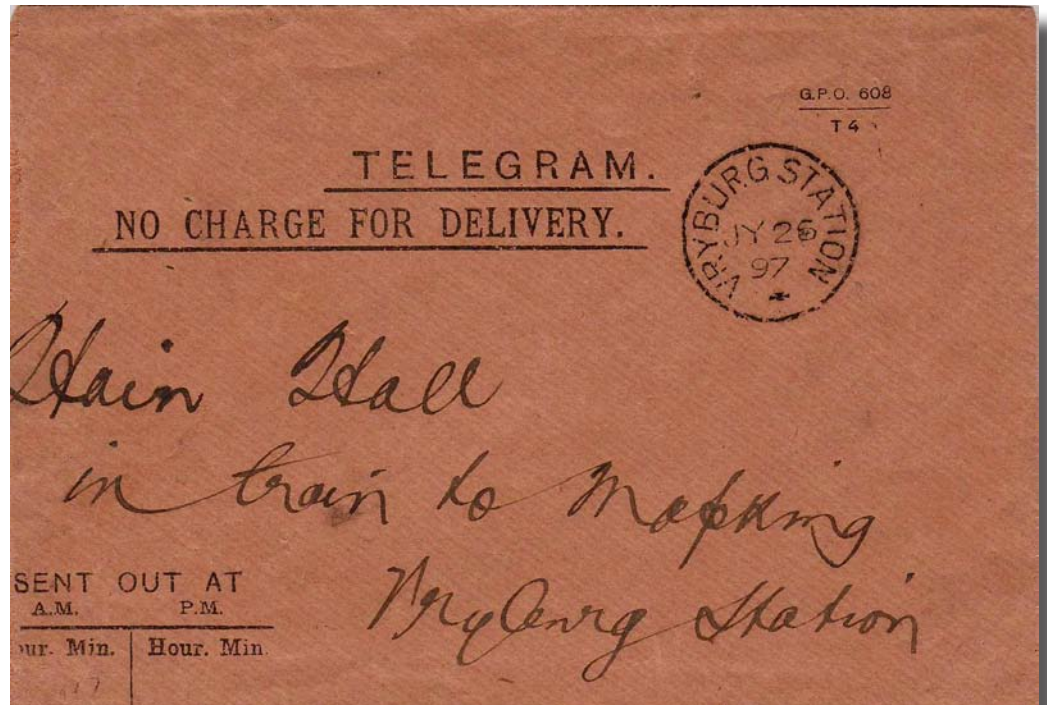 G.P.O. 608
T 4
TELEGRAM.
NO CHARGE FOR DELIVERY.
VRYBURG STATION
JY 26
97
Hain Hall
in train to Mafking
Vryburg Station
SENT OUT AT
A.M. P.M.
our. Min. Hour. Min.